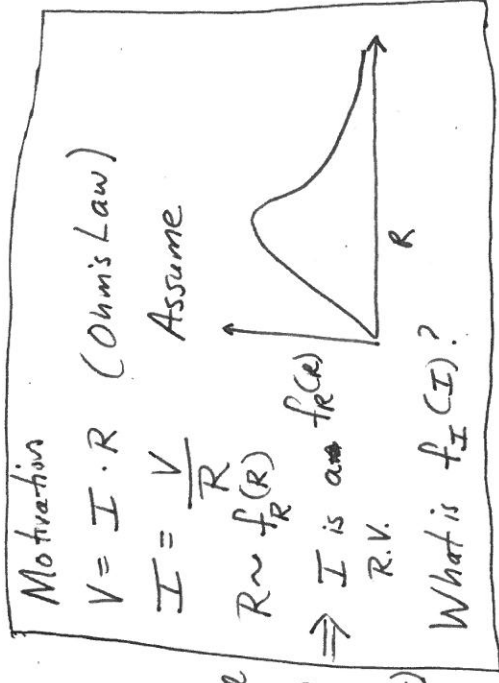 Motivation
V = I · R (Ohm's Law)
I = V/R Assume
R ~ f_R(R)
f_R(R)
R
⇒ I is a
R.V.
What is f_I(I)?